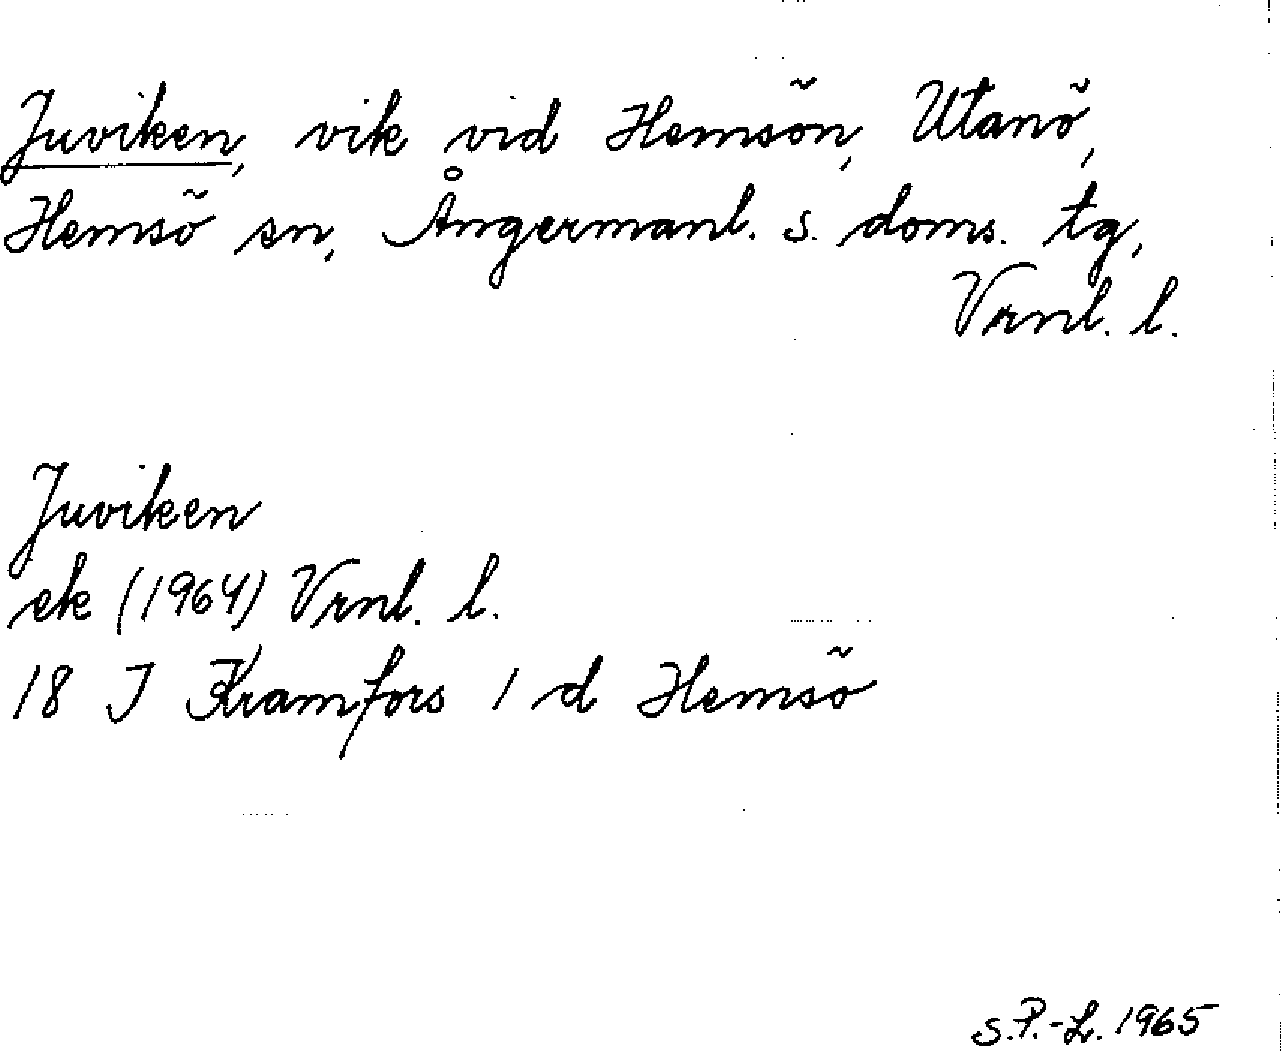 Juviken, vik vid Hemsön, Utanö,
Hemsö sn, Ångermanl. s. doms. tg,
Vrnl. l.
Juviken
ek (1964) Vrnl. l.
18 J Kramfors 1 d Hemsö
S.P.-L. 1965